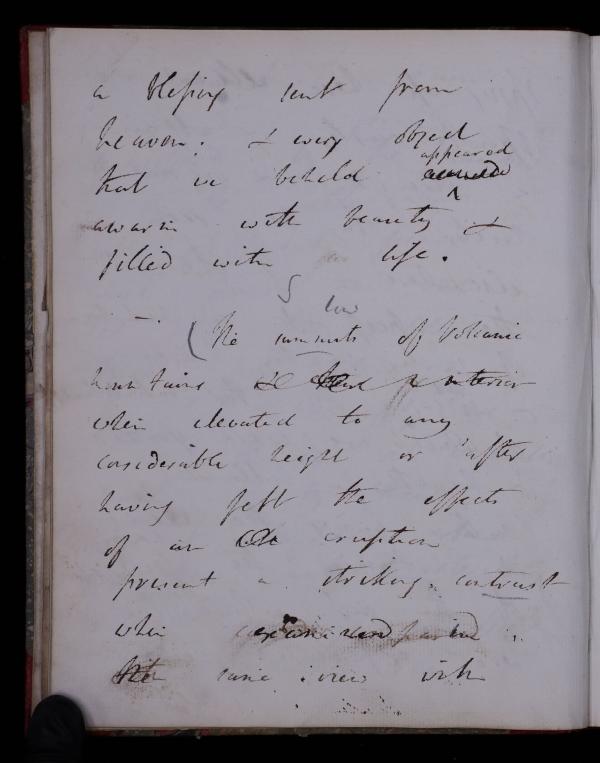 a blessing sent from
heaven. & every object
appeared
that we beheld
awarm with beauty &
filled with a life.
low
(The summits of Volcanic
Mountains exterior
when elevated to any
considerable height or after
having felt the effects
of an eruption
present a striking contrast
when examined
the same view with